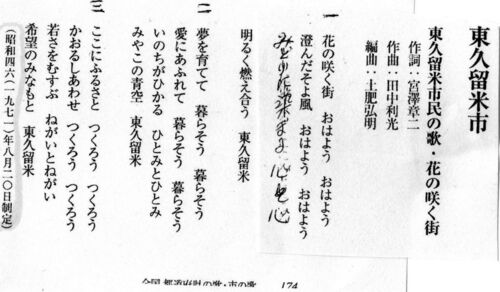 東久留米市
東久留米市民の歌・花の咲く街
作詞：宮澤章二
作曲：田中利光
編曲：土肥弘明
一 花の咲く街 おはよう おはよう
澄んだそよ風 おはよう おはよう
みどり 心と心
明るく燃え合う 東久留米
二 夢を育てて 暮らそう 暮らそう
愛にあふれて 暮らそう 暮らそう
いのちがひかる ひとみとひとみ
みやこの青空 東久留米
三 ここにふるさと つくろう つくろう
かおるしあわせ つくろう つくろう
若さをむすぶ ねがいとねがい
希望のみなもと 東久留米
（昭和四六（一九七一）年八月二〇日制定）
全国 都道府県の歌・市の歌 174